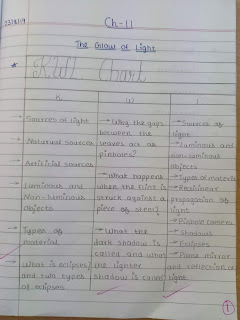 23/8/19
Ch-11
The Glow of Light
* KWL Chart
K
→ Sources of light
→ Natural sources
→ Artificial sources
→ Luminous and
Non-luminous
objects
→ Types of
material
→ What is eclipses?
and two types
of eclipses
W
→ Why the gaps
between the
leaves act as
pinholes?
→ What happens
when the flint is
struck against a
piece of steel?
→ What the
dark shadow is
called and what
the lighter
shadow is called
L
→ Sources of
light
→ Luminous and
non-luminous
objects
→ Types of material
→ Rectilinear
propagation of
light
→ Pinhole camera
→ Shadows
→ Eclipses
→ Plane mirror
and reflection of
light
1